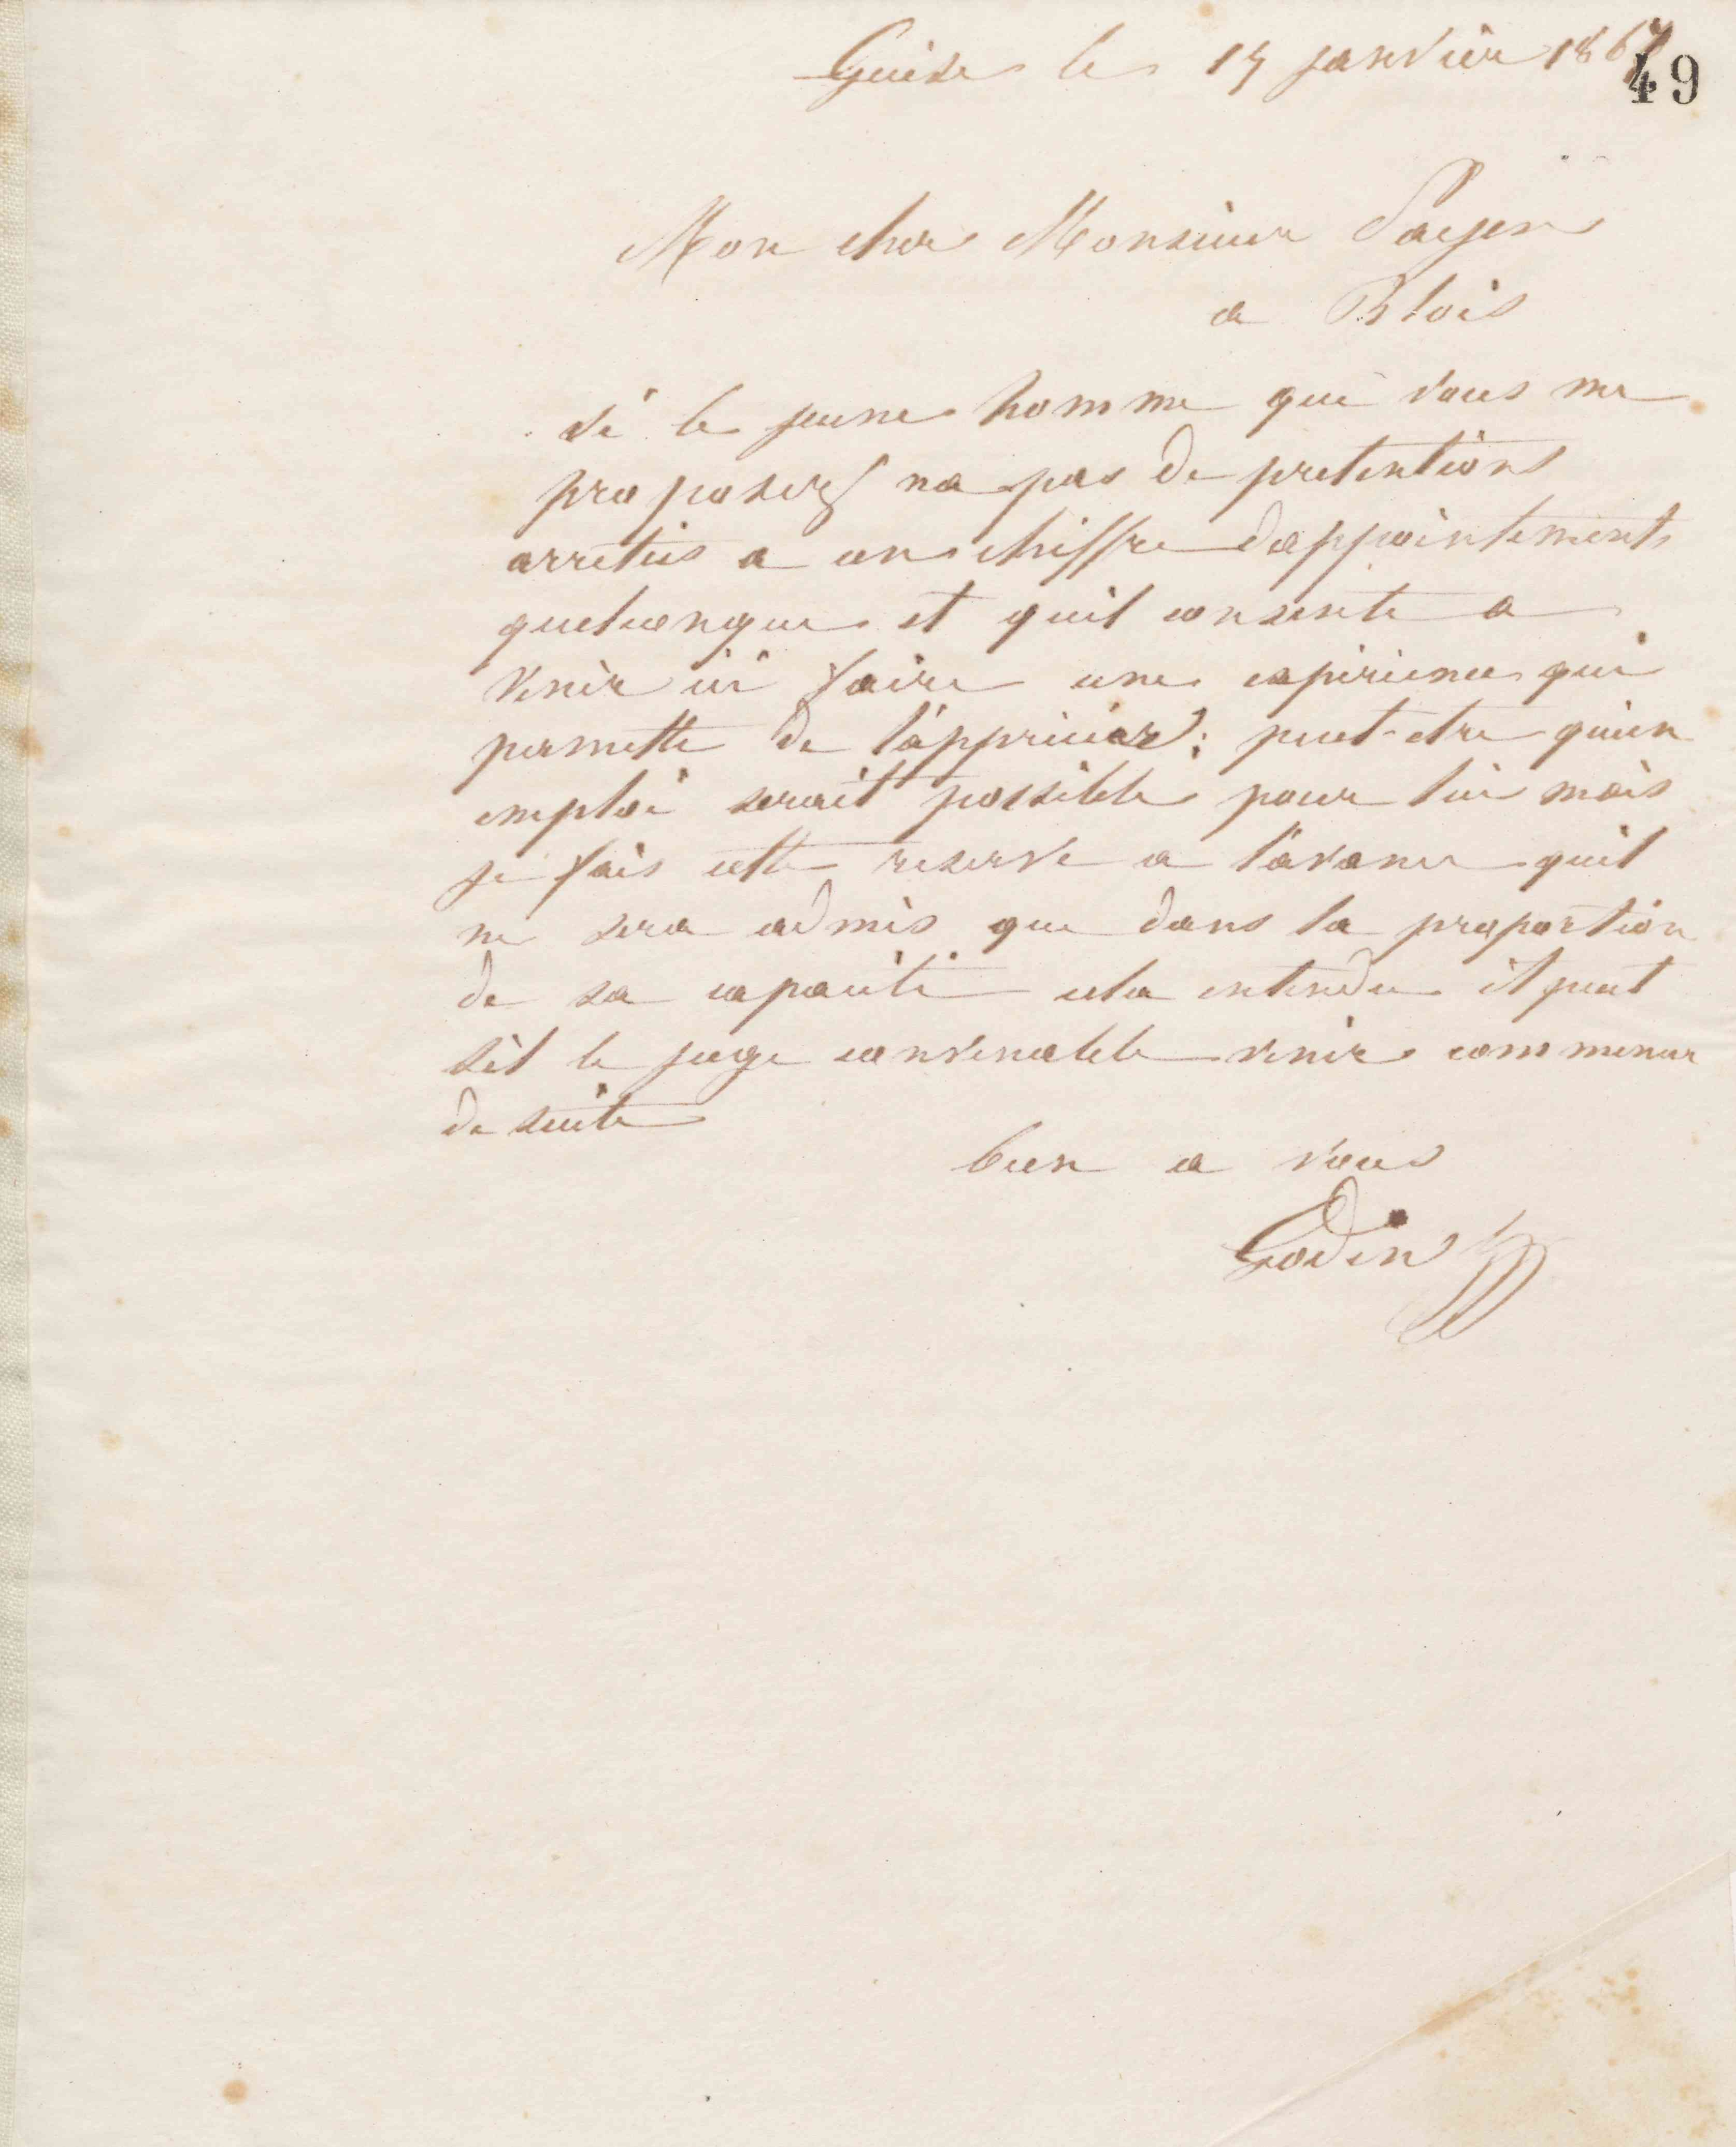 Guise le 15 janvier 1867
49
Mon cher Monsieur Payen
a Blois
si le jeune homme que vous me
proposez na pas de pretentions
arretées a un chiffre dappointements
quelconque et quil consente a
venir ici faire une expérience qui
permette de l'apprécier; peut-etre qu'un
emploi serait possible pour lui mais
je fais cette reserve a l'avance quil
ne sera admis que dans la proportion
de sa capacité cela entendu il peut
sil le juge convenable venir commencer
de suite
bien a vous
Godin